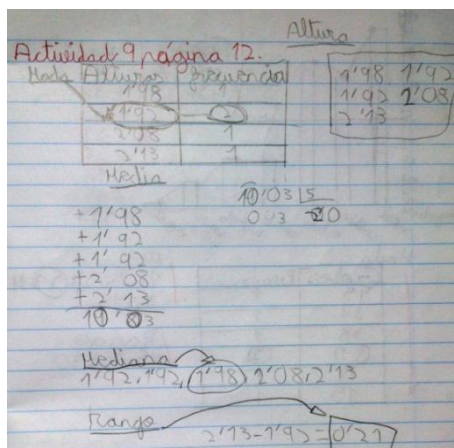 Altura
Actividad 9 página 12.
Moda Alturas frecuencia
1'98 1
1'92 2
2'08 1
2'13 1
1'98 1'92
1'92 2'08
2'13
Media
+1'98
+1'92
+1'92
+2'08
+2'13
10'03
10'03 5
003 20
Mediana
1'92,1'92,1'98,2'08,2'13
Rango
2'13-1'92=0'21